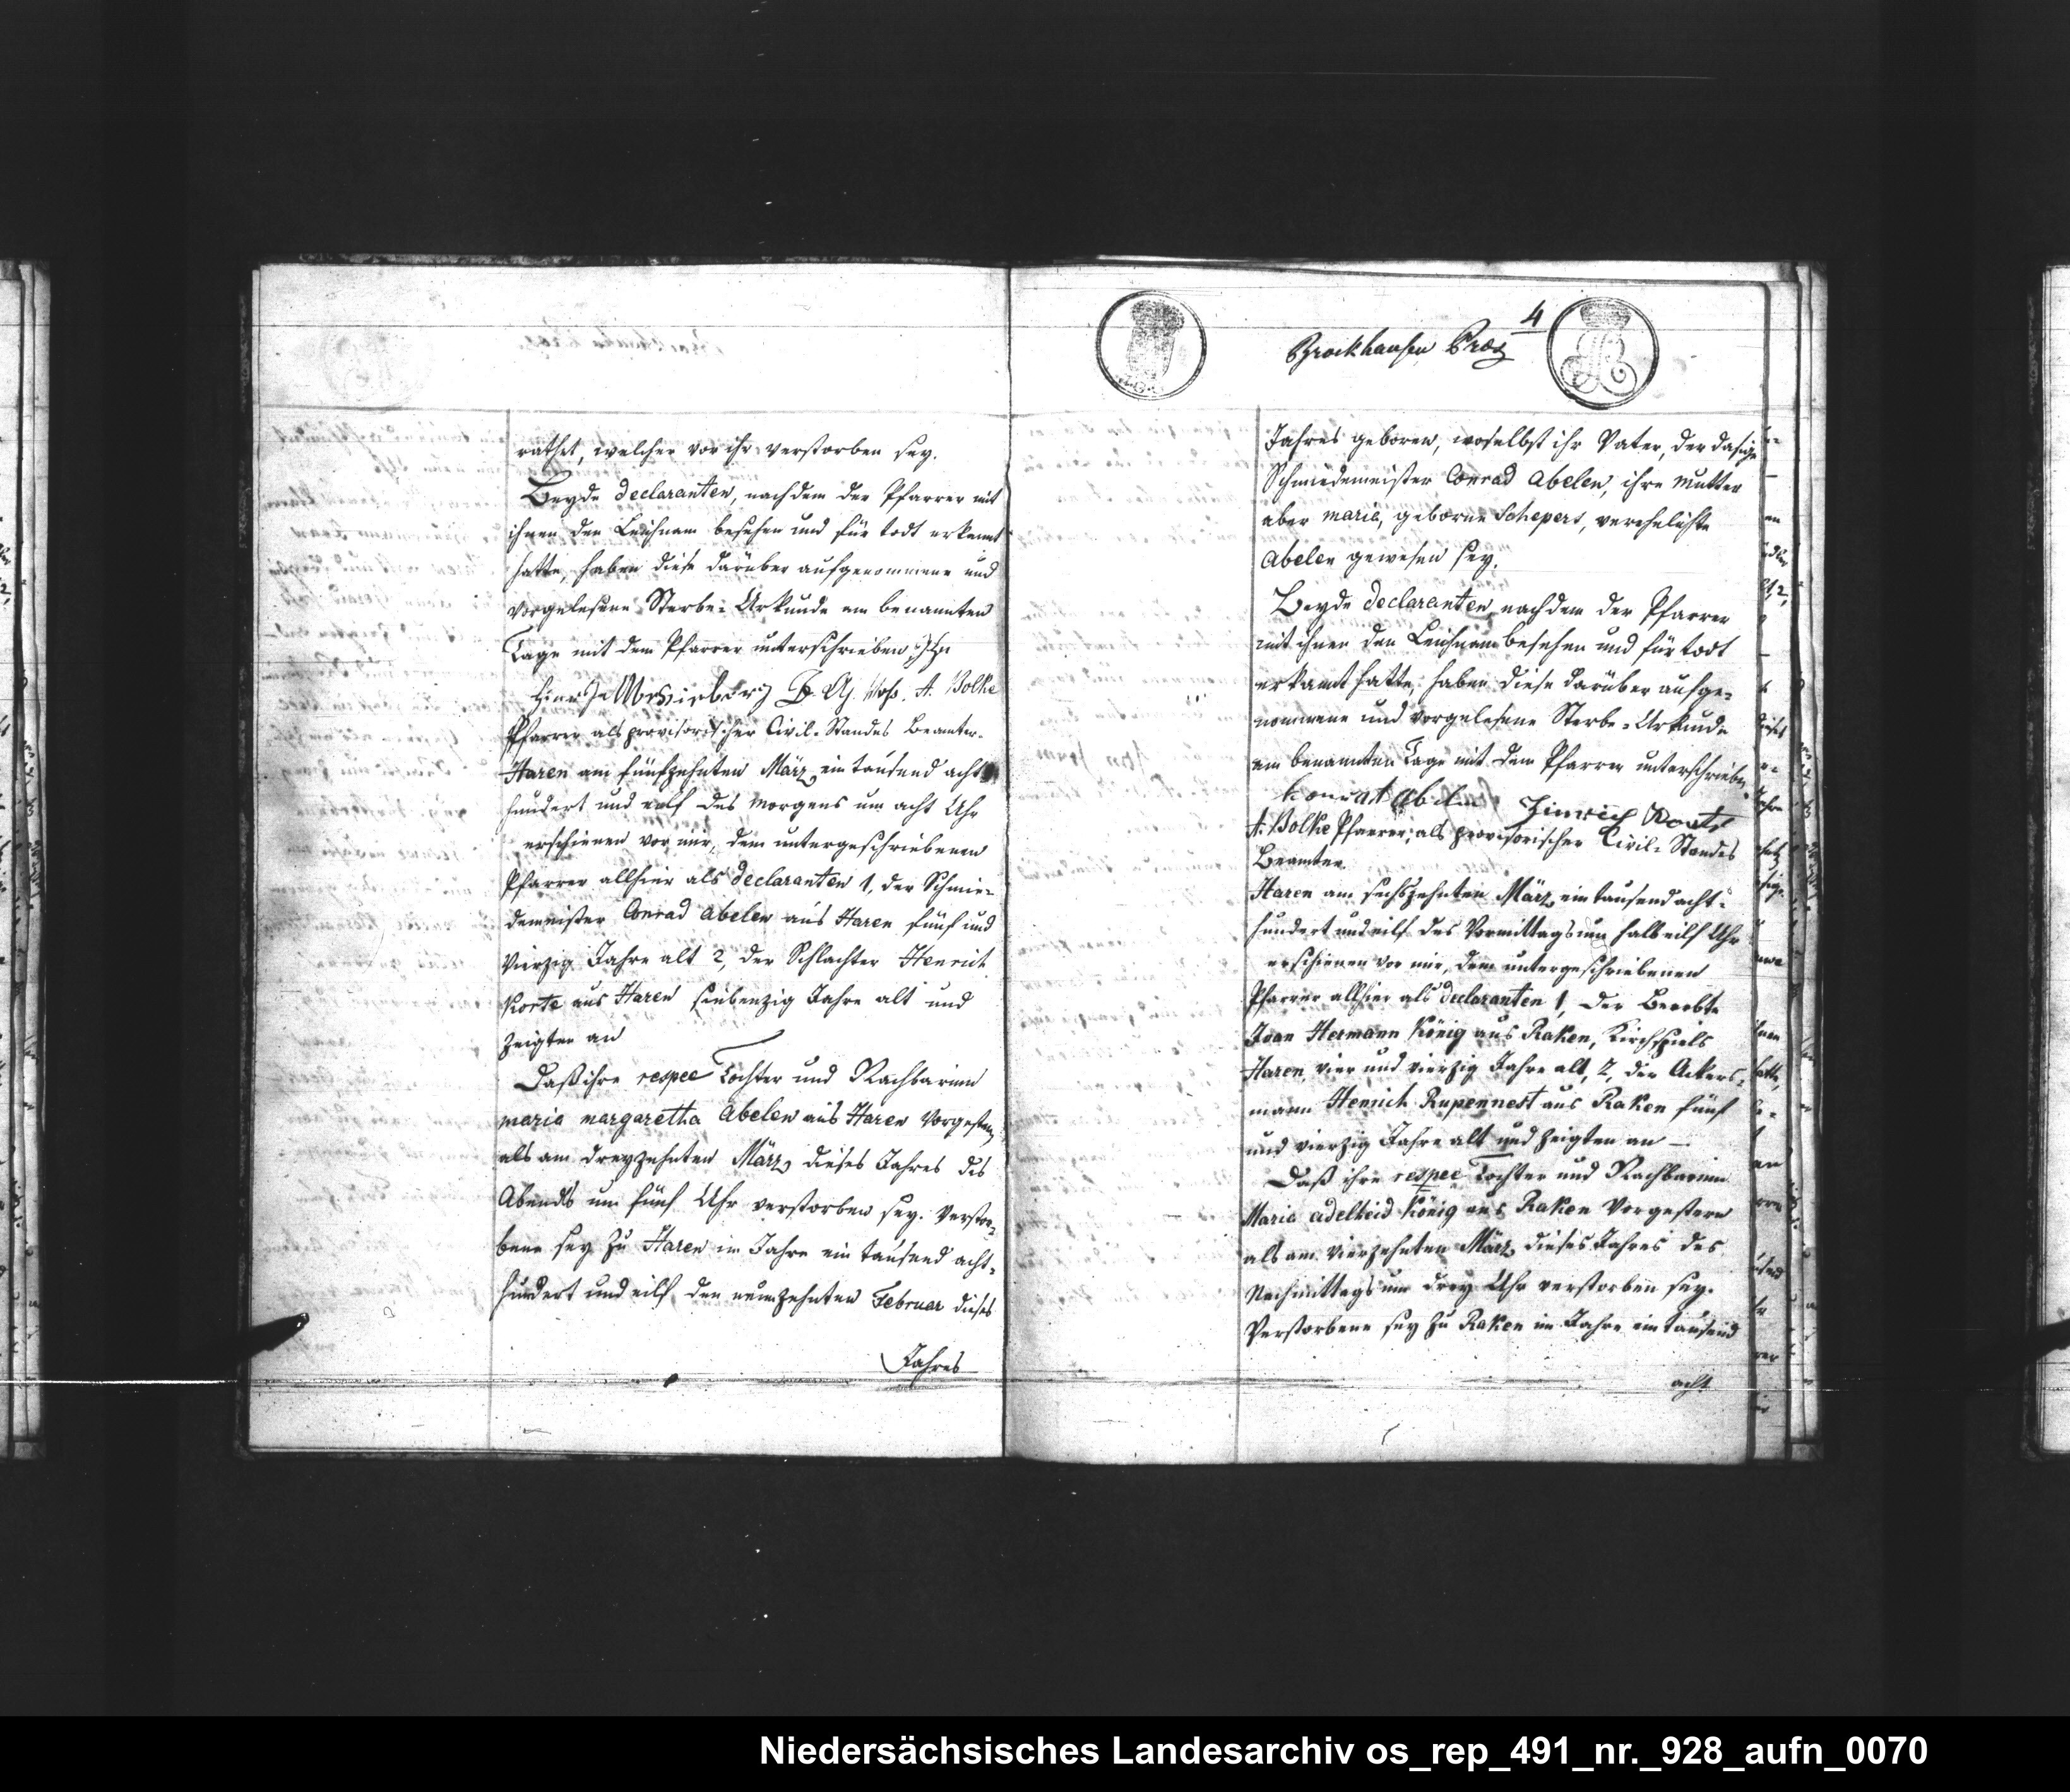 rathet, welcher vor ihr verstorben sey.
Beyde declaranten, nachdem der Pfarrer mit
ihnen den Leichnam besehen und für todt erkannt
hatte, haben diese darüber aufgenommene und
vorgelesene Sterbe-Urkunde am benannten
Tage mit dem Pfarrer unterschrieben
A. Bolke
Pfarrer als provisorischer Civil-Standes Beamter.
Haren am fünfzehnten März ein tausend acht
hundert und eilf des Morgens um acht Uhr
erschienen vor mir, dem untergeschriebenen
Pfarrer allhier als declaranten 1, der Schmie-
demeister Conrad Abelen aus Haren fünf und
vierzig Jahre alt 2, der Schlachter Henrich
Korte aus Haren siebenzig Jahre alt und
zeigten an
Daß ihre respec Tochter und Nachbarinn
maria margaretha Abelen aus Haren vorgestern
als am dreyzehnten März dieses Jahres des
Abends um fünf Uhr verstorben sey. Verstor-
bene sey zu Haren im Jahre ein tausend acht-
hundert und eilf den neunzehnten Februar dieses
Jahres
4
Brockhausen Praes
Jahres geboren, woselbst ihr Vater, der dasige
Schmiedemeister Conrad Abelen, ihre Mutter
aber maria, geborne Schepers, verehelichte
Abelen gewesen sey.
Beyde declaranten, nachdem der Pfarrer
mit ihnen den Leichnam besehen und für todt
erkannt hatte, haben diese darüber aufge-
nommene und vorgelesene Sterbe-Urkunde
am benannten Tage mit dem Pfarrer unterschrieben.
Konrat Abelen Hinrich Korte
A. Bolke Pfarrer, als provisorischer Civil-Standes
Beamter
Haren am sechszehnten März ein tausend acht-
hundert und eilf des Vormittags um halb eilf Uhr
erschienen vor mir, dem untergeschriebenen
Pfarrer allhier als declaranten 1, der Beerbte
Joan Hermann König aus Raken, Kirchspiels
Haren, vier und vierzig Jahre alt, 2, der Ackers-
mann Henrich Rupennest aus Raken fünf
und vierzig Jahre alt und zeigten an —
Daß ihre respec Tochter und Nachbarinn
Maria adelheid König aus Raken vorgestern
als am vierzehnten März dieses Jahres des
Nachmittags um drey Uhr verstorben sey.
Verstorbene sey zu Raken im Jahre ein tausend
acht
Niedersächsisches Landesarchiv os_rep_491_nr._928_aufn_0070